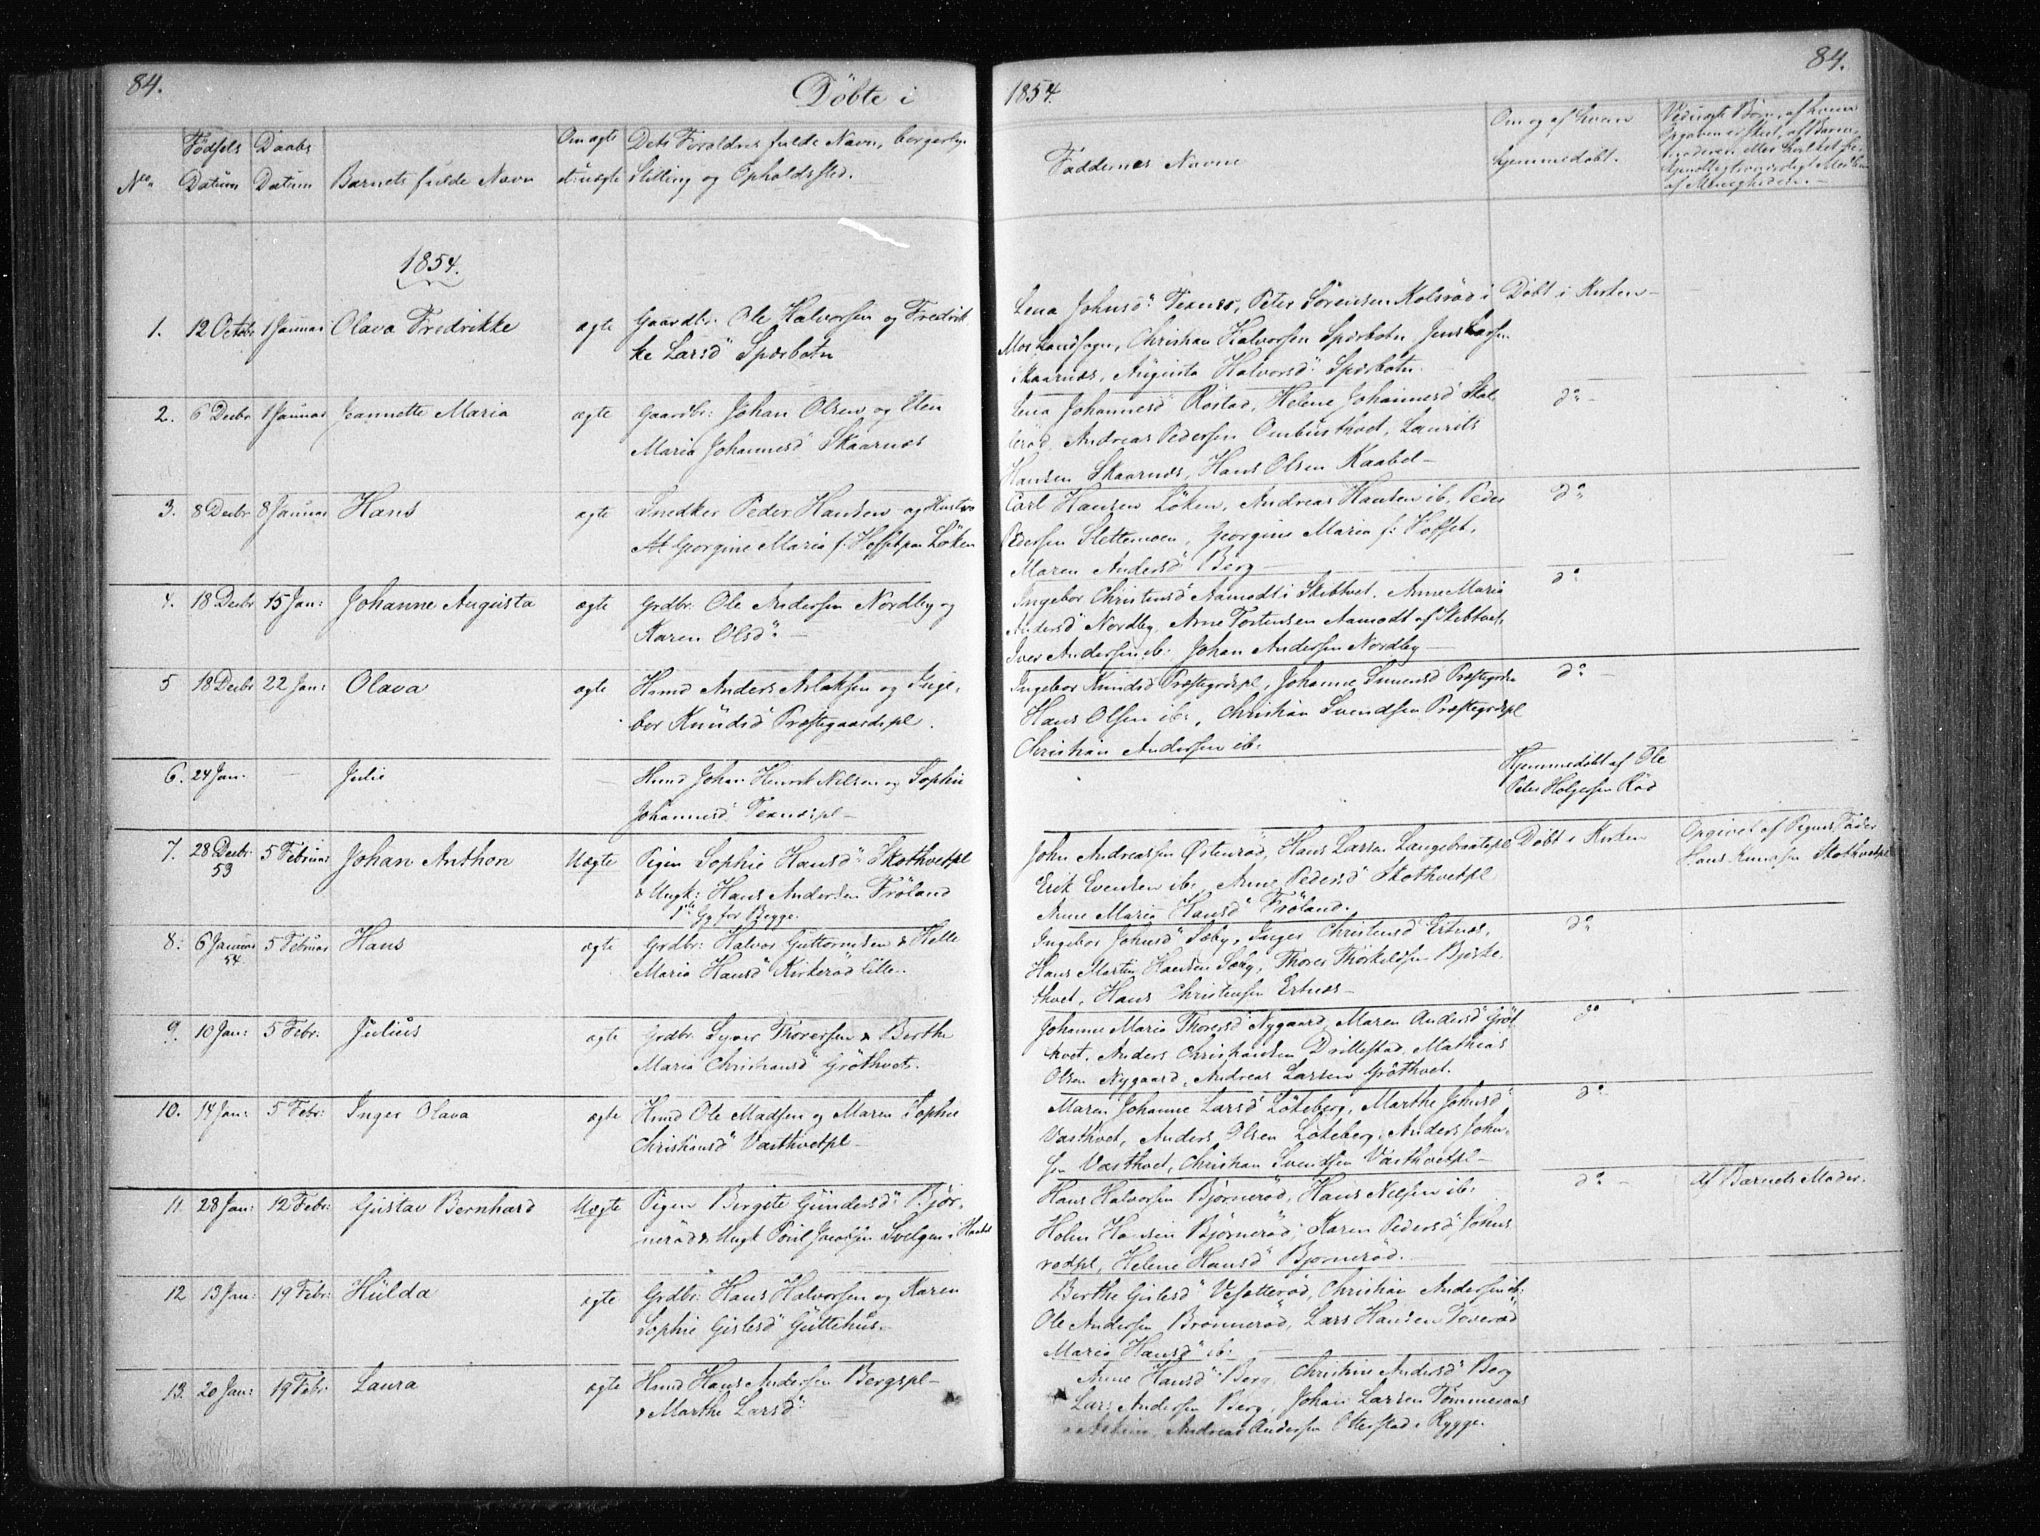 84.
Döbte i
1854.
84.
No.
Födsels Datum
Daabs Datum
Barnets fulde Navn
Om ægte el: uægte
Dets Forældres fulde Navn, borgerlige Stilling og Opholdssted.
Faddernes Navne
Om og af hvem hjemmedöbt.
1854.
1. 12 Octobr 1 Januar Olava Fredrikke ægte Gaardbr: Ole Halvorsen og Fredrik-
ke Larsd Spærbotn
Lena Johnsd Texnes, Peter Sörensen Kolsröd i Döbt i Kirken
Mos Landsogn, Christian Halvorsen Spærbotn Jens Larsen
Skaarnæs, Augusta Halvorsd Spærbotn
2. 6 Decbr 1 Januar Jeannette Maria ægte Gaardbr: Johan Olsen og Elen
Maria Johannesd Skaarnæs
Lena Johannesd Röstad, Helene Johannesd Skal- do
leröd, Andreas Pedersen Ombusthvet, Laurits
Hansen Skaarnæs, Hans Olsen Kaabel
3. 8 Decbr 8 Januar Hans ægte Snedker Peder Hansen og Hustro
At Georgine Maria f: Hoffset paa Löken
Carl Hansen Löken, Andreas Hansen ib, Peder do
Pedersen Slettemoen, Georgine Maria f: Hoffset,
Maren Andersd Berg
4. 18 Decbr 15 Jan: Johanne Augusta ægte Grdbr. Ole Andersen Nordby og
Karen Olsd
Ingebor Christensd Aamodt i Skibthvet. Anne Maria do
Andersd Nordby, Arne Torstensen Aamodt af Skibtvet,
Iver Andersen ib: Johan Andersen Nordby
5 18 Decbr 22 Jan: Olava ægte Hmd Anders Aslaksen og Inge-
bor Knudsd Præstegaardspl.
Ingebor Knudsd Præstegrdspl, Johanne Simensd Præstegrds do
Hans Olsen ib:, Christian Svendsen Præstegrdspl
Christian Andersen ib:
6. 24 Jan. — Julie — Hmd Johan Henrik Nilsen og Sophie
Johannesd Texnæspl
Hjemmedöbt af Ole
Peter Holgersen Röd
7. 28 Decbr 53 5 Februar Johan Anthon Uægte Pigen Sophie Hansd Skothvetpl
& Ungk: Hans Andersen Fröland
1ste Gg for Begge
John Andreassen Östenröd, Hans Larsen Langebraatepl Döbt i Kirken Opgivet af Pigens Fader
Erik Evensen ib: Anne Pedersd Skothvetpl Hans Knudsen Skothvetpl
Anne Maria Hansd Fröland.
8. 6 Januar 54 5 Februar Hans ægte Grdbr: Halvor Guttormsen & Helle
Maria Hansd Kirkeröd lille
Ingebor Johnsd Sæby, Inger Christensd Ertnæs, do
Hans Martin Hansen Sæby, Thorer Thorkildsen Bjerke-
thvet, Hans Christensen Ertnæs
9. 10 Jan: 5 Febr: Julius ægte Grdbr: Syver Thorersen & Berthe
Maria Christiansd Gröthvet
Johanne Maria Thorersd Nygaard, Maren Andersd Gröt- do
hvet. Anders Christiansen Drillestad, Mathias
Olsen Nygaard, Andreas Larsen Gröthvet.
10. 14 Jan: 5 Febr: Inger Olava ægte Hmd Ole Madsen og Maren Sophie
Christiansd Vasthvetpl
Maren Johanne Larsd Lökeberg, Marthe Johnsd do
Vasthvet, Anders Olsen Lökeberg, Anders John-
sen Vasthvet, Christian Svendsen Vasthvetpl
11. 28 Jan: 12 Febr: Gustav Bernhard Uægte Pigen Birgite Gundersd Björ-
neröd & Ungk Povel Jacobsen Svelgen i
Hans Halvorsen Björneröd, Hans Nilsen ib: do Af Barnets Moder.
Holen Hansen Björneröd, Karen Pedersd Johns-
rødpl, Helene Hansd Bjorneröd.
12 13 Jan: 19 Febr: Hulda ægte Grdbr: Hans Halvorsen og Karen
Sophie Gislesd Guttehus
Berthe Gislesd Vesetteröd, Christian Andersen ib:
Ole Andersen Brönneröd, Lars Hansen Toveröd
Maria Hansd ib:
13. 20 Jan: 19 Febr: Laura ægte Hmd Hans Andersen Bergspl
& Marthe Larsd
Anne Hansd Berg, Christine Andersd Berg
Lars Andersen Berg, Johan Larsen Tömmeraas
Andreas Andersen Otterstad i Rygge.